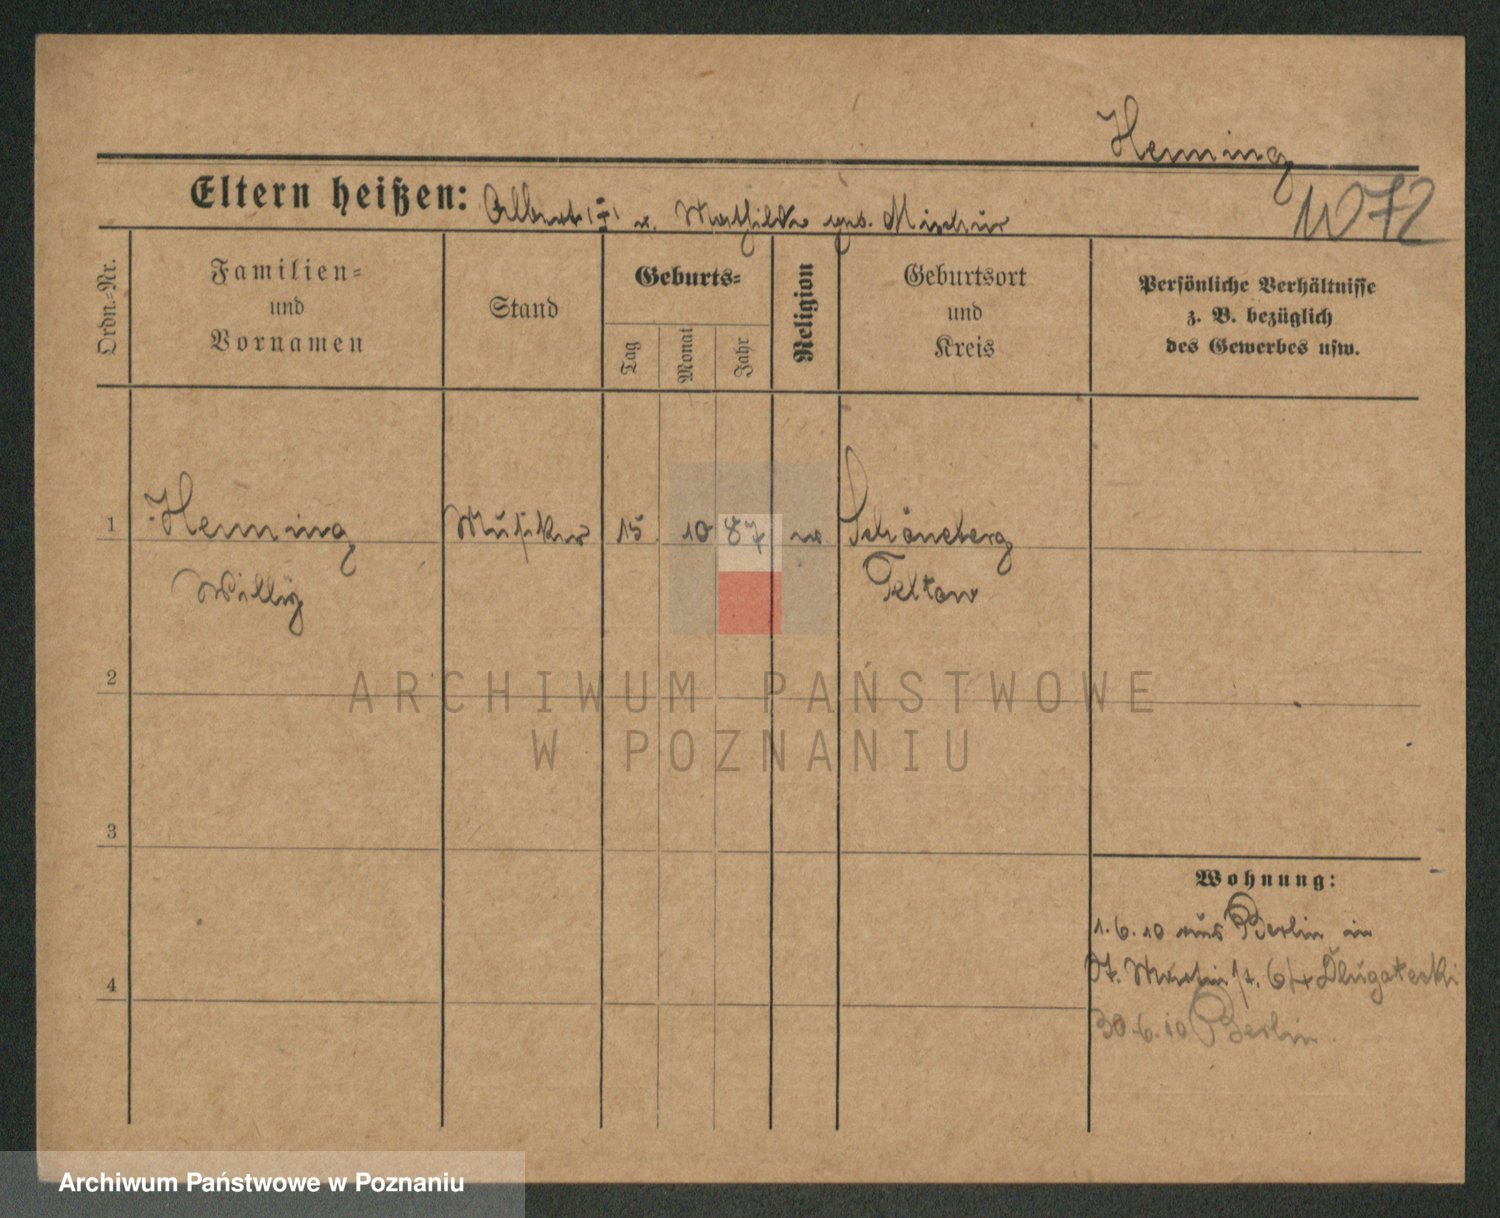 Henning
Eltern heißen: Albert (†) u. Mathilde geb.
1072
Ordn.-Nr.
Familien-
und
Vornamen
Stand
Geburts-
Tag
Monat
Jahr
Religion
Geburtsort
und
Kreis
Persönliche Verhältnisse
z. B. bezüglich
des Gewerbes usw.
1 Henning Musiker 15 10 87 Schöneberg
Willy Teltow
ARCHIWUM PAŃSTWOWE
W POZNANIU
2
3
4
Wohnung:
1.6.10 aus Berlin in
St. Martinst. 64 Dlugatecki
30.6.10 Berlin
Archiwum Państwowe w Poznaniu